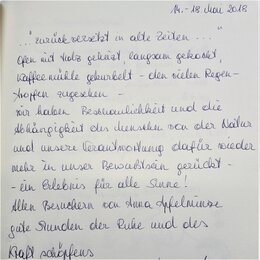 14. - 18. Mai 2018
... "zurückversetzt in alte Zeiten ..."
Ofen mit Holz geheizt, langsam gekocht,
Kaffeemühle gekurbelt - den vielen Regen-
tropfen zugesehen -
wir haben Beschaulichkeit und die
Abhängigkeit des Menschen von der Natur
und unsere Verantwortung dafür wieder
mehr in unser Bewußtsein gerückt -
- ein Erlebnis für alle Sinne!
Allen Besuchern von Anna
gute Stunden der Ruhe und des
Kraft schöpfens